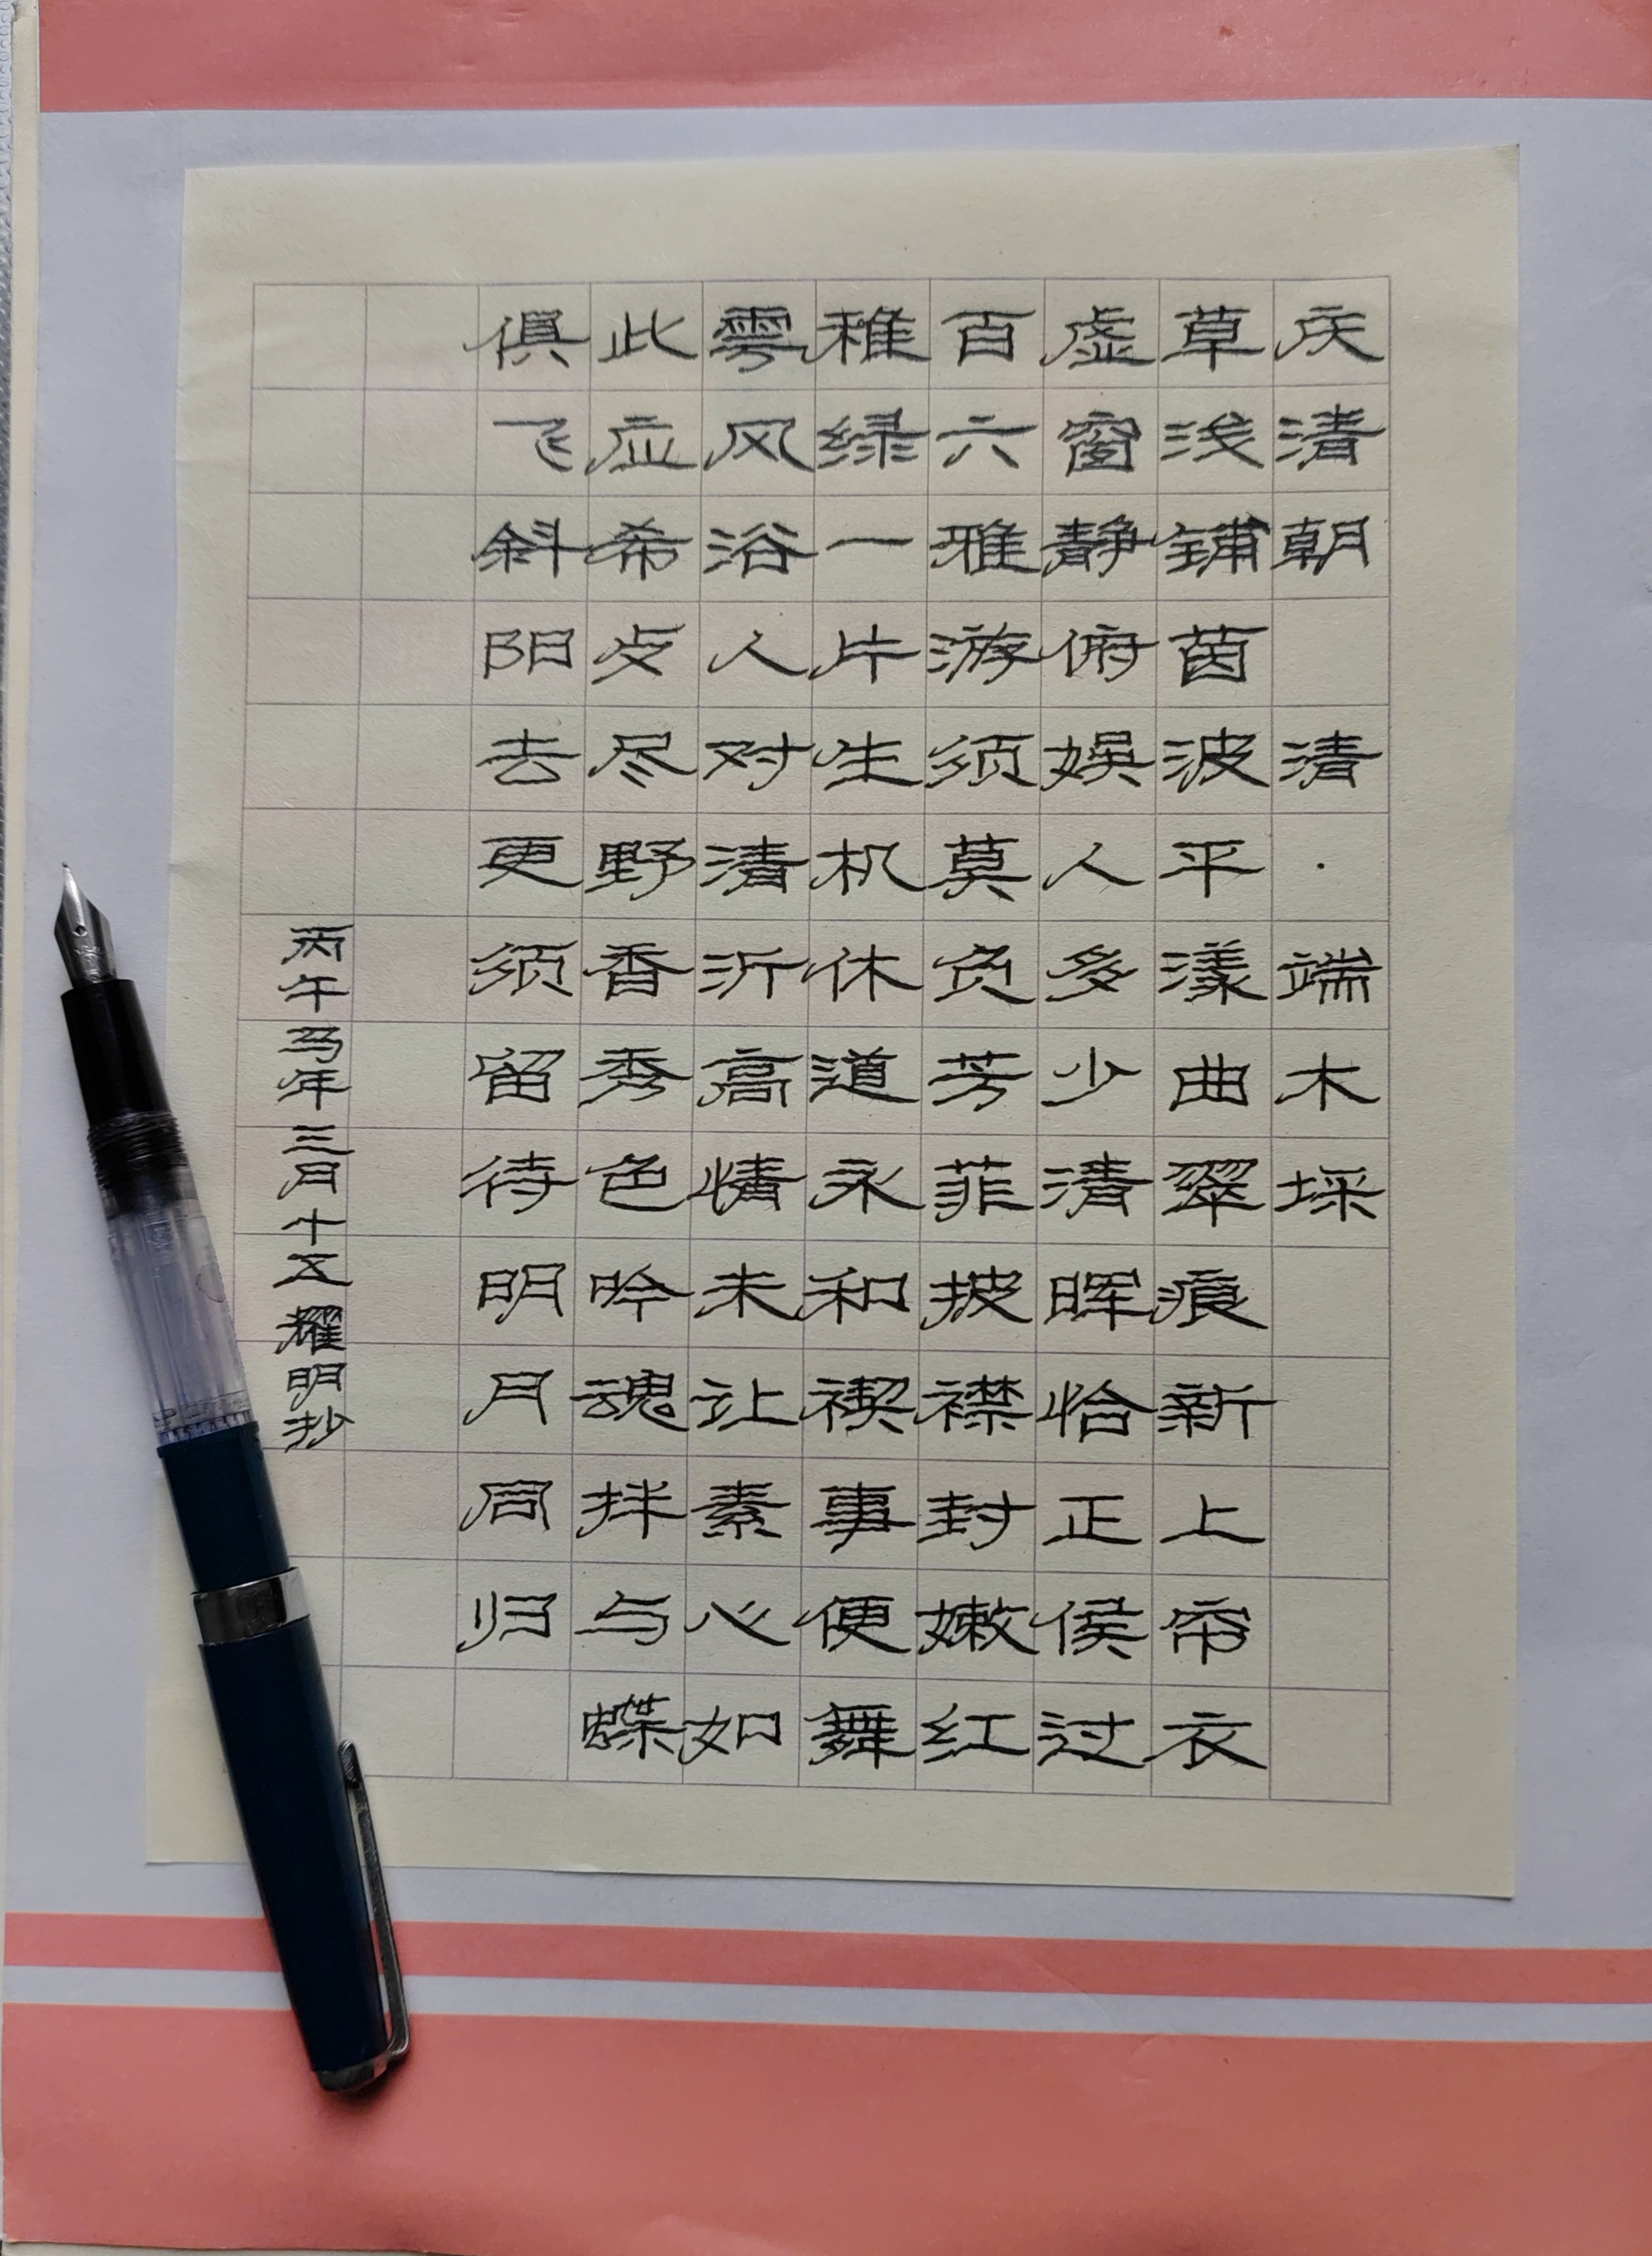 庆清朝 清·端木埰
草浅铺茵波平漾曲翠痕新上帘衣
虚窗静俯娱人多少清晖恰正侯过
百六雅游须莫负芳菲披襟封嫩红
稚绿一片生机休道永和禊事便舞
雩风浴人对清沂高情未让素心如
此应希点尽野香秀色吟魂拌与蝶
俱飞斜阳去更须留待明月同归
丙午马年三月十五耀明抄